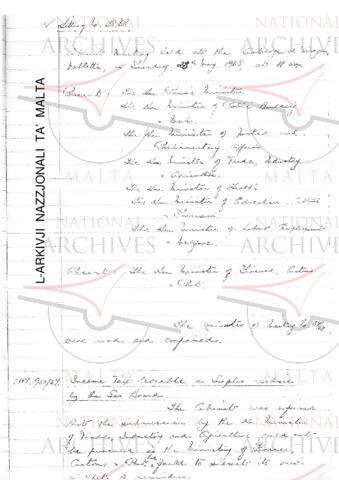 Sitting No.
Cabinet Meeting held at the Auberge d'Aragon,
Valletta, on Tuesday, 28th May 1968, at 11 a.m.
Present: The Hon. Prime Minister
The Hon. Minister of Public Building
& Works
The Hon Minister of Justice and
Parliamentary Affairs
The Hon Minister of Trade, Industry
& Agriculture
The Hon Minister of Health
The Hon Minister of Education, Culture
& Tourism
The Hon Minister of Labour, Employment
& Welfare
Absent: The Hon Minister of Finance, Customs
& Port.
The minutes of meeting No.
were read and confirmed.
Income Tax payable on Surplus
by the Gas Board
The Cabinet was informed
that the submission by the Hon Minister
of Trade, Industry and Agriculture could not
be processed as the Ministry of Finance,
Customs & Port had failed to submit its views
in spite of reminders.
L-ARKIVJI NAZZJONALI TA' MALTA
NATIONAL
ARCHIVES
MALTA
NATIONAL
ARCHIVES
MALTA
NATIONAL
ARCHIVES